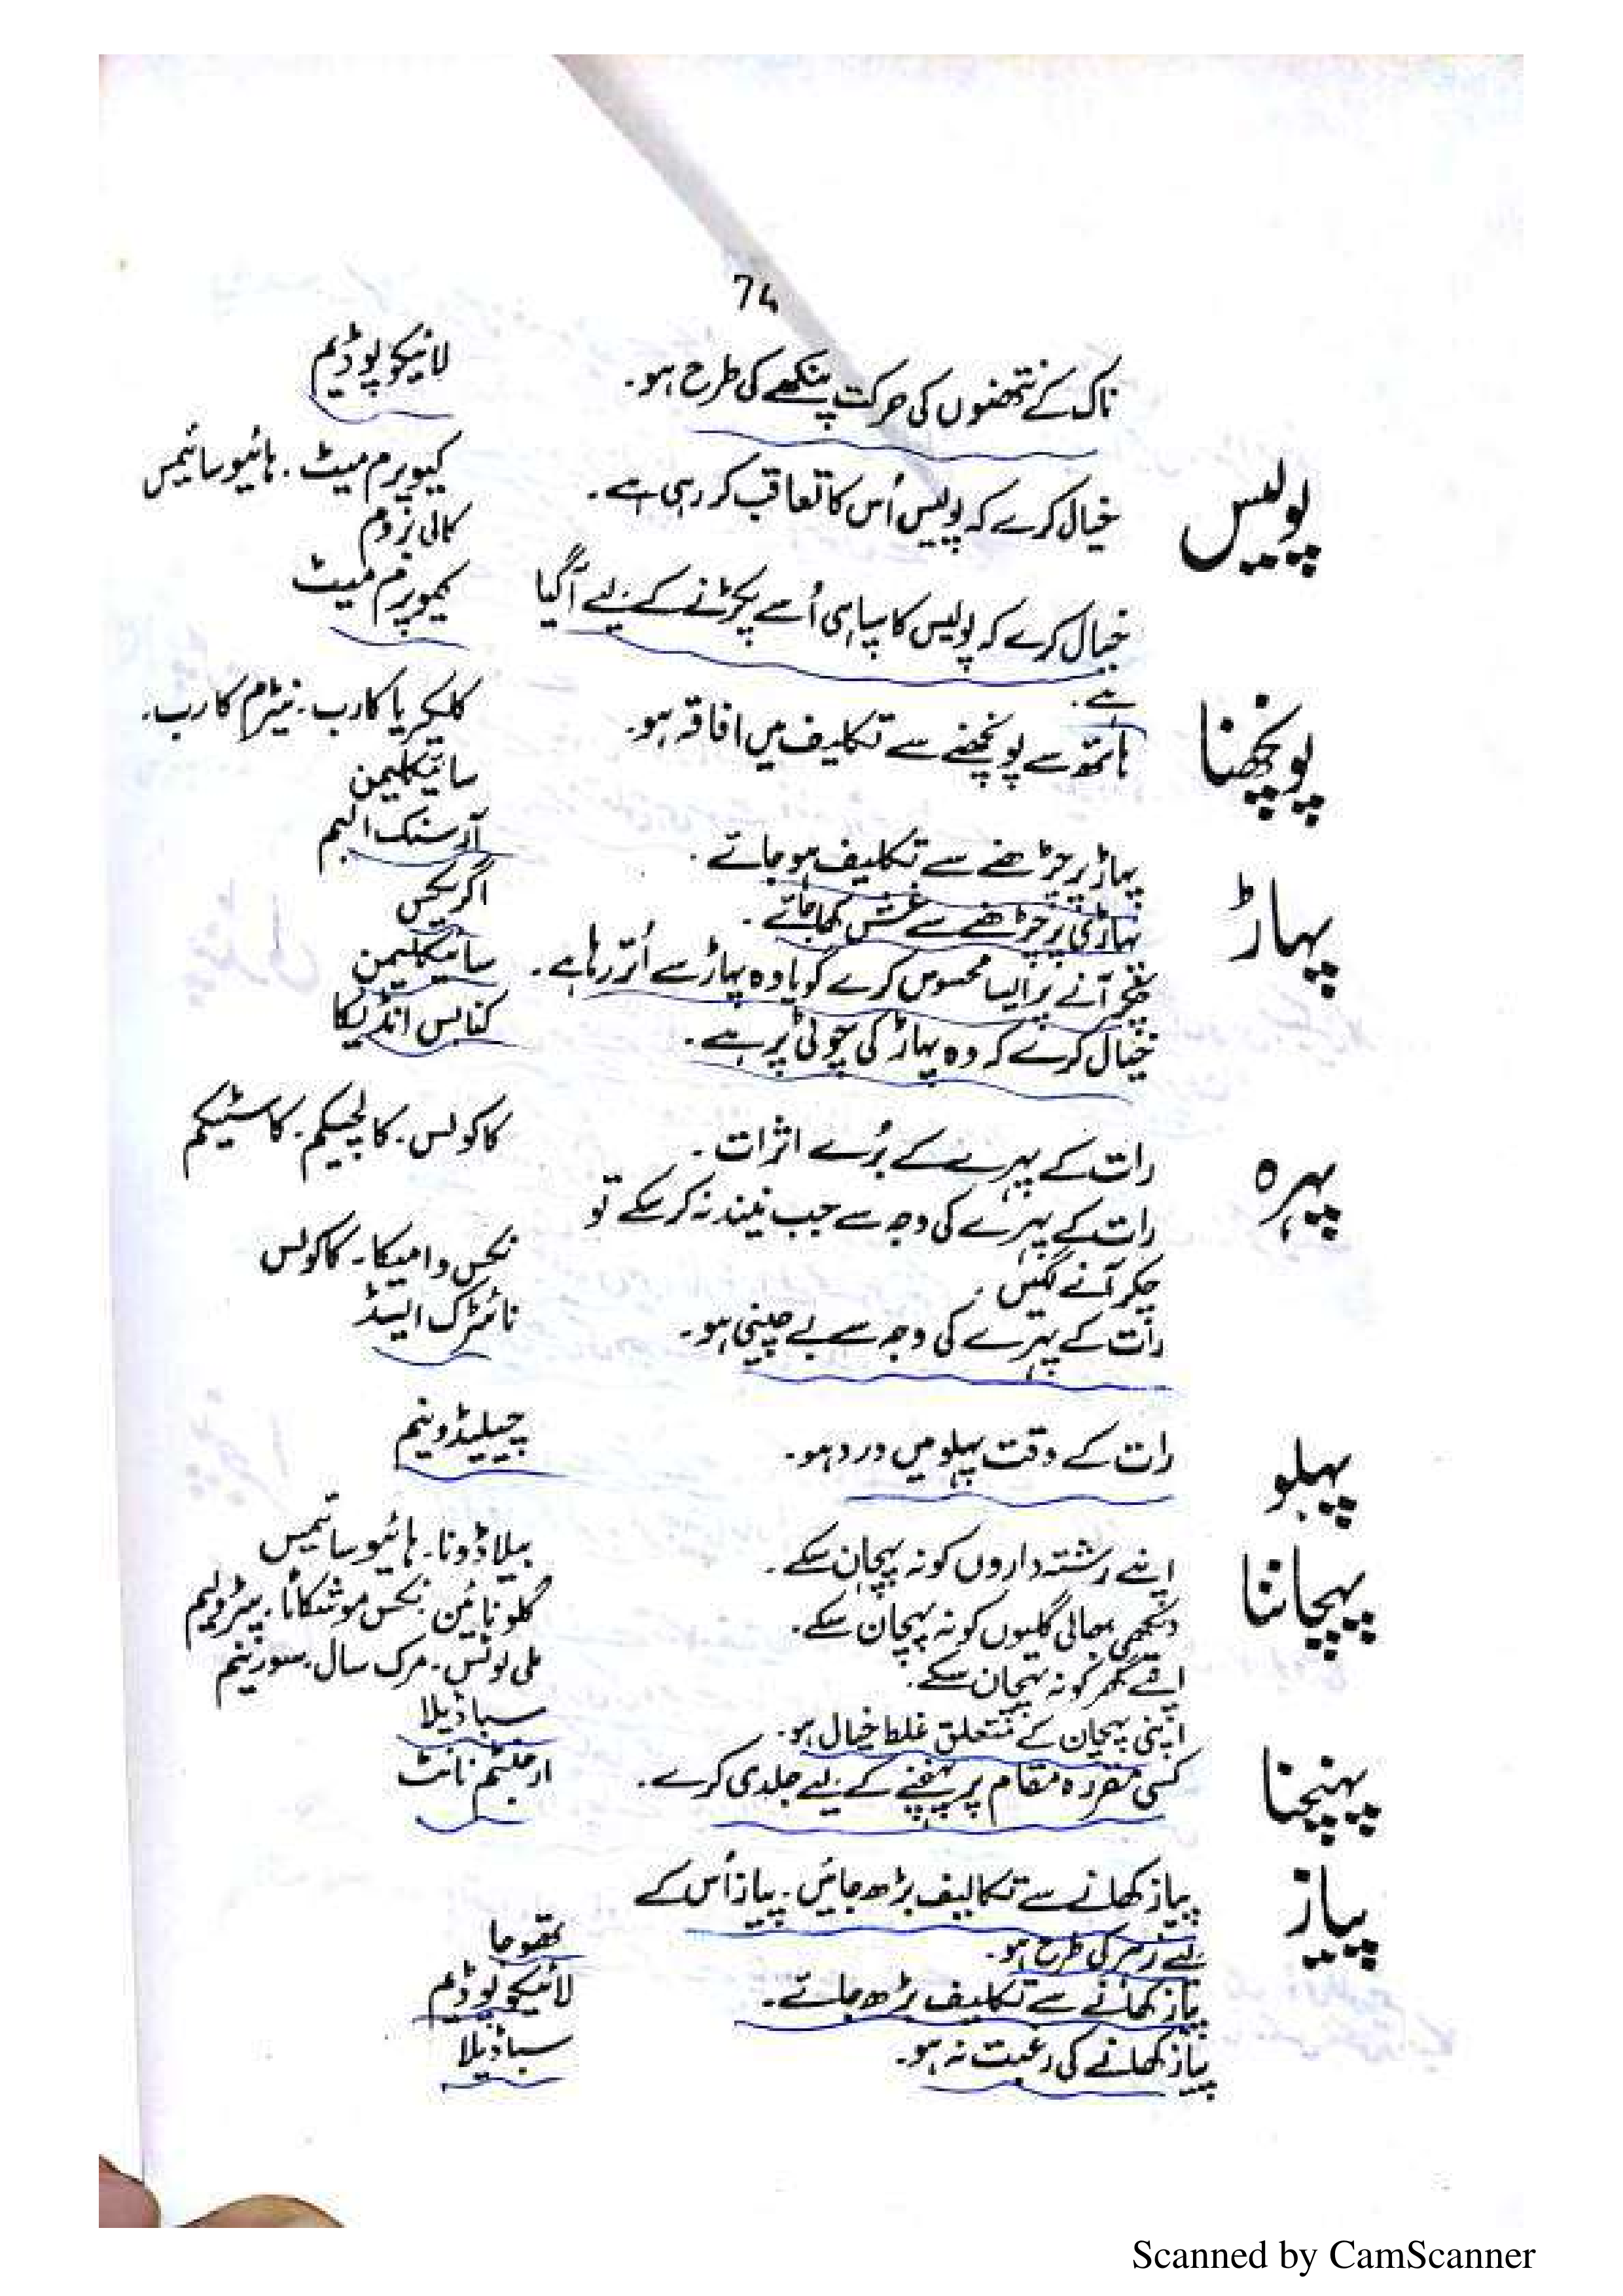 74
ناک کے نتھنوں کی حرکت پنکھے کی طرح ہو۔ لائیکوپوڈیم
پولیس خیال کرے کہ پولیس اُس کا تعاقب کر رہی ہے۔ کیوپرم میٹ۔ ہائیوسائیمس
کالی بروم
خیال کرے کہ پولیس کا سپاہی اُسے پکڑنے کے لیے آگیا کیوپرم میٹ
ہے۔
پونچھنا ہاتھ سے پونچھنے سے تکلیف میں افاقہ ہو۔ کلکیریا کارب۔ نیٹرم کارب۔
سائیکلیمن
پہاڑ پہاڑ پر چڑھنے سے تکلیف ہو جائے۔ آرسنک البم
پہاڑی پر چڑھنے سے غش کھا جائے۔ اگریکس
چکر آنے پر ایسا محسوس کرے گویا وہ پہاڑ سے اُتر رہا ہے۔ سائیکلیمن
خیال کرے کہ وہ پہاڑ کی چوٹی پر ہے۔ کنابس انڈیکا
پہرہ رات کے پہرے کے بُرے اثرات۔ کاکولس۔ کالچیکم۔ کاسٹیکم
رات کے پہرے کی وجہ سے جب نیند نہ کر سکے تو
چکر آنے لگیں۔ نکس وامیکا۔ کاکولس
رات کے پہرے کی وجہ سے بے چینی ہو۔ نائٹرک ایسڈ
پہلو رات کے وقت پہلو میں درد ہو۔ چیلیڈونیم
پہچاننا اپنے رشتہ داروں کو نہ پہچان سکے۔ بیلاڈونا۔ ہائیوسائیمس
دیکھی بھالی گلیوں کو نہ پہچان سکے۔ گلونائین۔ نکس موشکاٹا۔ پیٹرولیم
اپنے گھر کو نہ پہچان سکے۔ ملی لوٹس۔ مرک سال۔ سورینم
اپنی پہچان کے متعلق غلط خیال ہو۔ سباڈیلا
پہنچنا کسی مقررہ مقام پر پہنچنے کے لیے جلدی کرے۔ ارجنٹم نائٹ
پیاز پیاز کھانے سے تکالیف بڑھ جائیں۔ پیاز اُس کے
لیے زہر کی طرح ہو۔ تھوجا
پیاز کھانے سے تکلیف بڑھ جائے۔ لائیکوپوڈیم
پیاز کھانے کی رغبت نہ ہو۔ سباڈیلا
Scanned by CamScanner